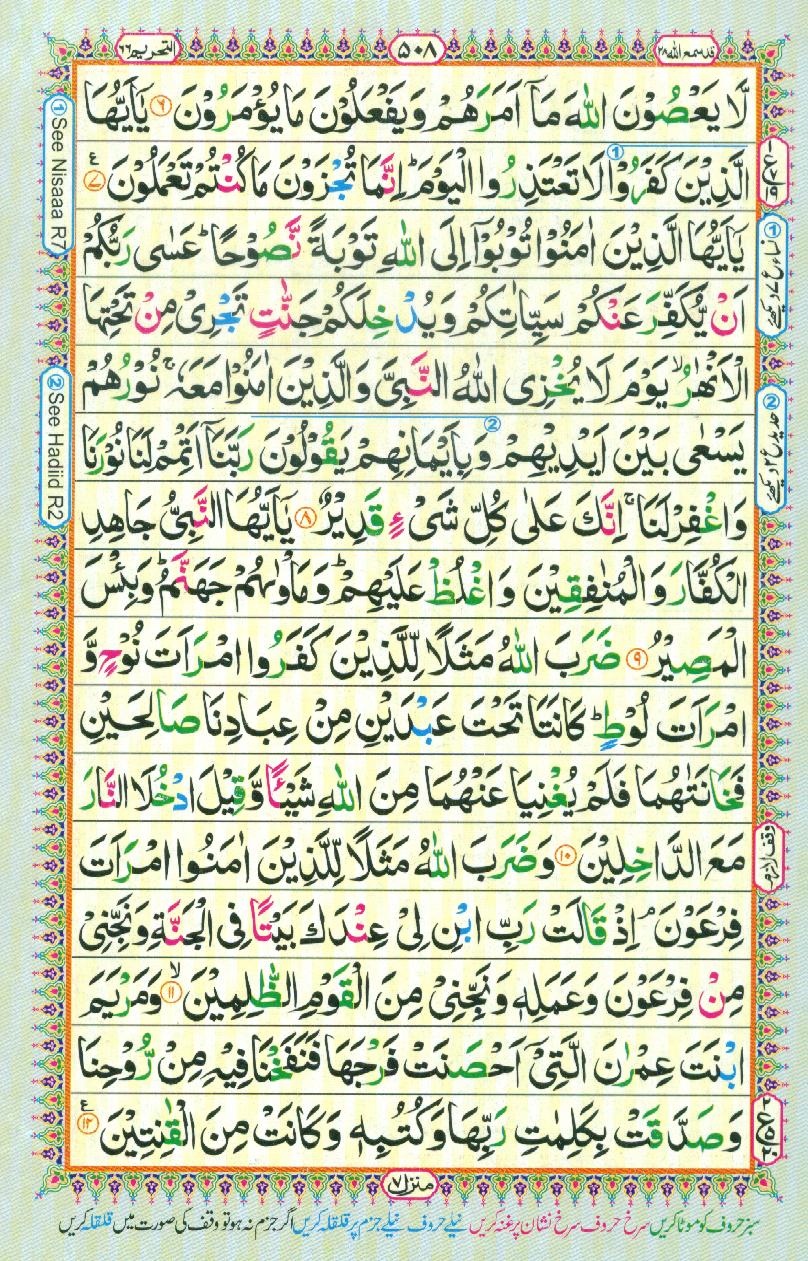 قد سمع اللہ ۲۸
۵۰۸
التحریم ۶۶
لَّا یَعْصُوْنَ اللّٰهَ مَاۤ اَمَرَهُمْ وَ یَفْعَلُوْنَ مَا یُؤْمَرُوْنَ ۶ یٰۤاَیُّهَا
الَّذِیْنَ كَفَرُوْا لَا تَعْتَذِرُوا الْیَوْمَ ؕ اِنَّمَا تُجْزَوْنَ مَا كُنْتُمْ تَعْمَلُوْنَ ۷ ع
یٰۤاَیُّهَا الَّذِیْنَ اٰمَنُوْا تُوْبُوْۤا اِلَى اللّٰهِ تَوْبَةً نَّصُوْحًا ؕ عَسٰى رَبُّكُمْ
اَنْ یُّكَفِّرَ عَنْكُمْ سَیِّاٰتِكُمْ وَ یُدْخِلَكُمْ جَنّٰتٍ تَجْرِیْ مِنْ تَحْتِهَا
الْاَنْهٰرُ ۙ یَوْمَ لَا یُخْزِی اللّٰهُ النَّبِیَّ وَ الَّذِیْنَ اٰمَنُوْا مَعَهٗ ۚ نُوْرُهُمْ
یَسْعٰى بَیْنَ اَیْدِیْهِمْ وَ بِاَیْمَانِهِمْ یَقُوْلُوْنَ رَبَّنَاۤ اَتْمِمْ لَنَا نُوْرَنَا
وَ اغْفِرْ لَنَا ۚ اِنَّكَ عَلٰى كُلِّ شَیْءٍ قَدِیْرٌ ۸ یٰۤاَیُّهَا النَّبِیُّ جَاهِدِ
الْكُفَّارَ وَ الْمُنٰفِقِیْنَ وَ اغْلُظْ عَلَیْهِمْ ؕ وَ مَاْوٰىهُمْ جَهَنَّمُ ؕ وَ بِئْسَ
الْمَصِیْرُ ۹ ضَرَبَ اللّٰهُ مَثَلًا لِّلَّذِیْنَ كَفَرُوا امْرَاَتَ نُوْحٍ وَّ
امْرَاَتَ لُوْطٍ ؕ كَانَتَا تَحْتَ عَبْدَیْنِ مِنْ عِبَادِنَا صَالِحَیْنِ
فَخَانَتٰهُمَا فَلَمْ یُغْنِیَا عَنْهُمَا مِنَ اللّٰهِ شَیْـًٔا وَّ قِیْلَ ادْخُلَا النَّارَ
مَعَ الدّٰخِلِیْنَ ۱۰ وَ ضَرَبَ اللّٰهُ مَثَلًا لِّلَّذِیْنَ اٰمَنُوا امْرَاَتَ
فِرْعَوْنَ ۘ اِذْ قَالَتْ رَبِّ ابْنِ لِیْ عِنْدَكَ بَیْتًا فِی الْجَنَّةِ وَ نَجِّنِیْ
مِنْ فِرْعَوْنَ وَ عَمَلِهٖ وَ نَجِّنِیْ مِنَ الْقَوْمِ الظّٰلِمِیْنَ ۱۱ ۙ وَ مَرْیَمَ
ابْنَتَ عِمْرٰنَ الَّتِیْۤ اَحْصَنَتْ فَرْجَهَا فَنَفَخْنَا فِیْهِ مِنْ رُّوْحِنَا
وَ صَدَّقَتْ بِكَلِمٰتِ رَبِّهَا وَ كُتُبِهٖ وَ كَانَتْ مِنَ الْقٰنِتِیْنَ ۱۲ ع
① نساء ع ۷ دیکھئے
② حدید ع ۲ دیکھئے
وقف لازم
① See Nisaaa R7
② See Hadiid R2
منزل ۷
سبز حروف کو موٹا کریں سرخ حروف سرخ نشان پر غنہ کریں نیلے حروف نیلے جزم پر قلقلہ کریں اگر جزم نہ ہو تو وقف کی صورت میں قلقلہ کریں